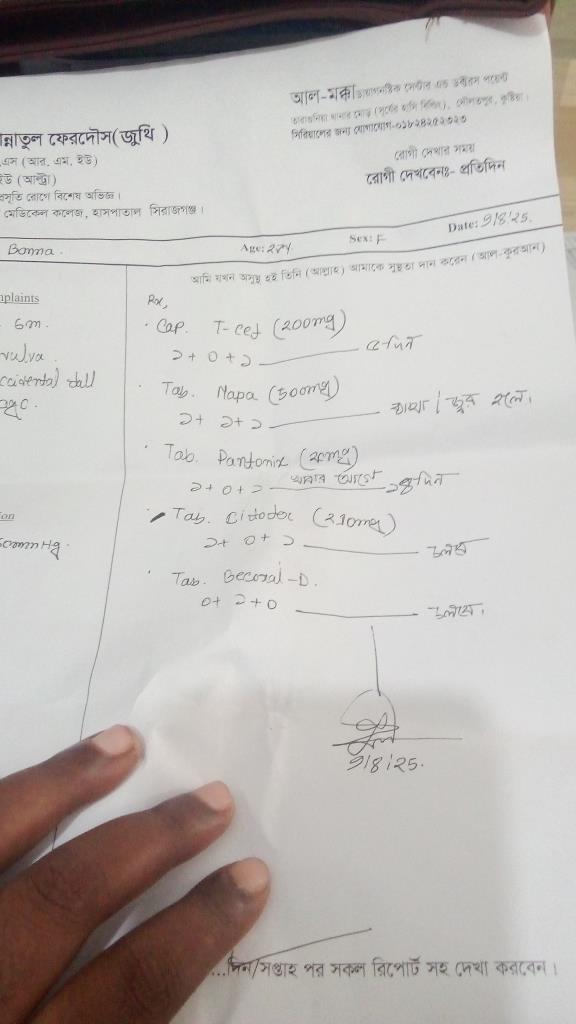 আল-মক্কা ডায়াগনস্টিক সেন্টার এন্ড ডক্টরস পয়েন্ট
তারাগুনিয়া থানার মোড় (সূর্যের হাসি বিল্ডিং), দৌলতপুর, কুষ্টিয়া।
সিরিয়ালের জন্য যোগাযোগ-
ন্নাতুল ফেরদৌস(জুথি )
এস (আর, এম, ইউ)
ইউ (আল্ট্রা)
বসূতি রোগে বিশেষ অভিজ্ঞ।
মেডিকেল কলেজ, হাসপাতাল সিরাজগঞ্জ।
রোগী দেখার সময়
রোগী দেখবেনঃ- প্রতিদিন
Bonna. Age: 27Y Sex: F Date: 9/8/25.
আমি যখন অসুস্থ হই তিনি (আল্লাহ) আমাকে সুস্থতা দান করেন (আল-কুরআন)
mplaints
6m.
vulva
ccidental fall
ago.
ion
mmHg.
Rx,
Cap. T-cef (200mg)
১+০+১ দিন
Tab. Napa (500mg)
১+১+১ ব্যথা / জ্বর হলে।
Tab. Pantonix (20mg)
১+০+১ খাবার আগে দিন
Tab.
১+০+১ চলবে
Tab. -D.
০+১+০ চলবে।
9/8/25.
...দিন/সপ্তাহ পর সকল রিপোর্ট সহ দেখা করবেন।